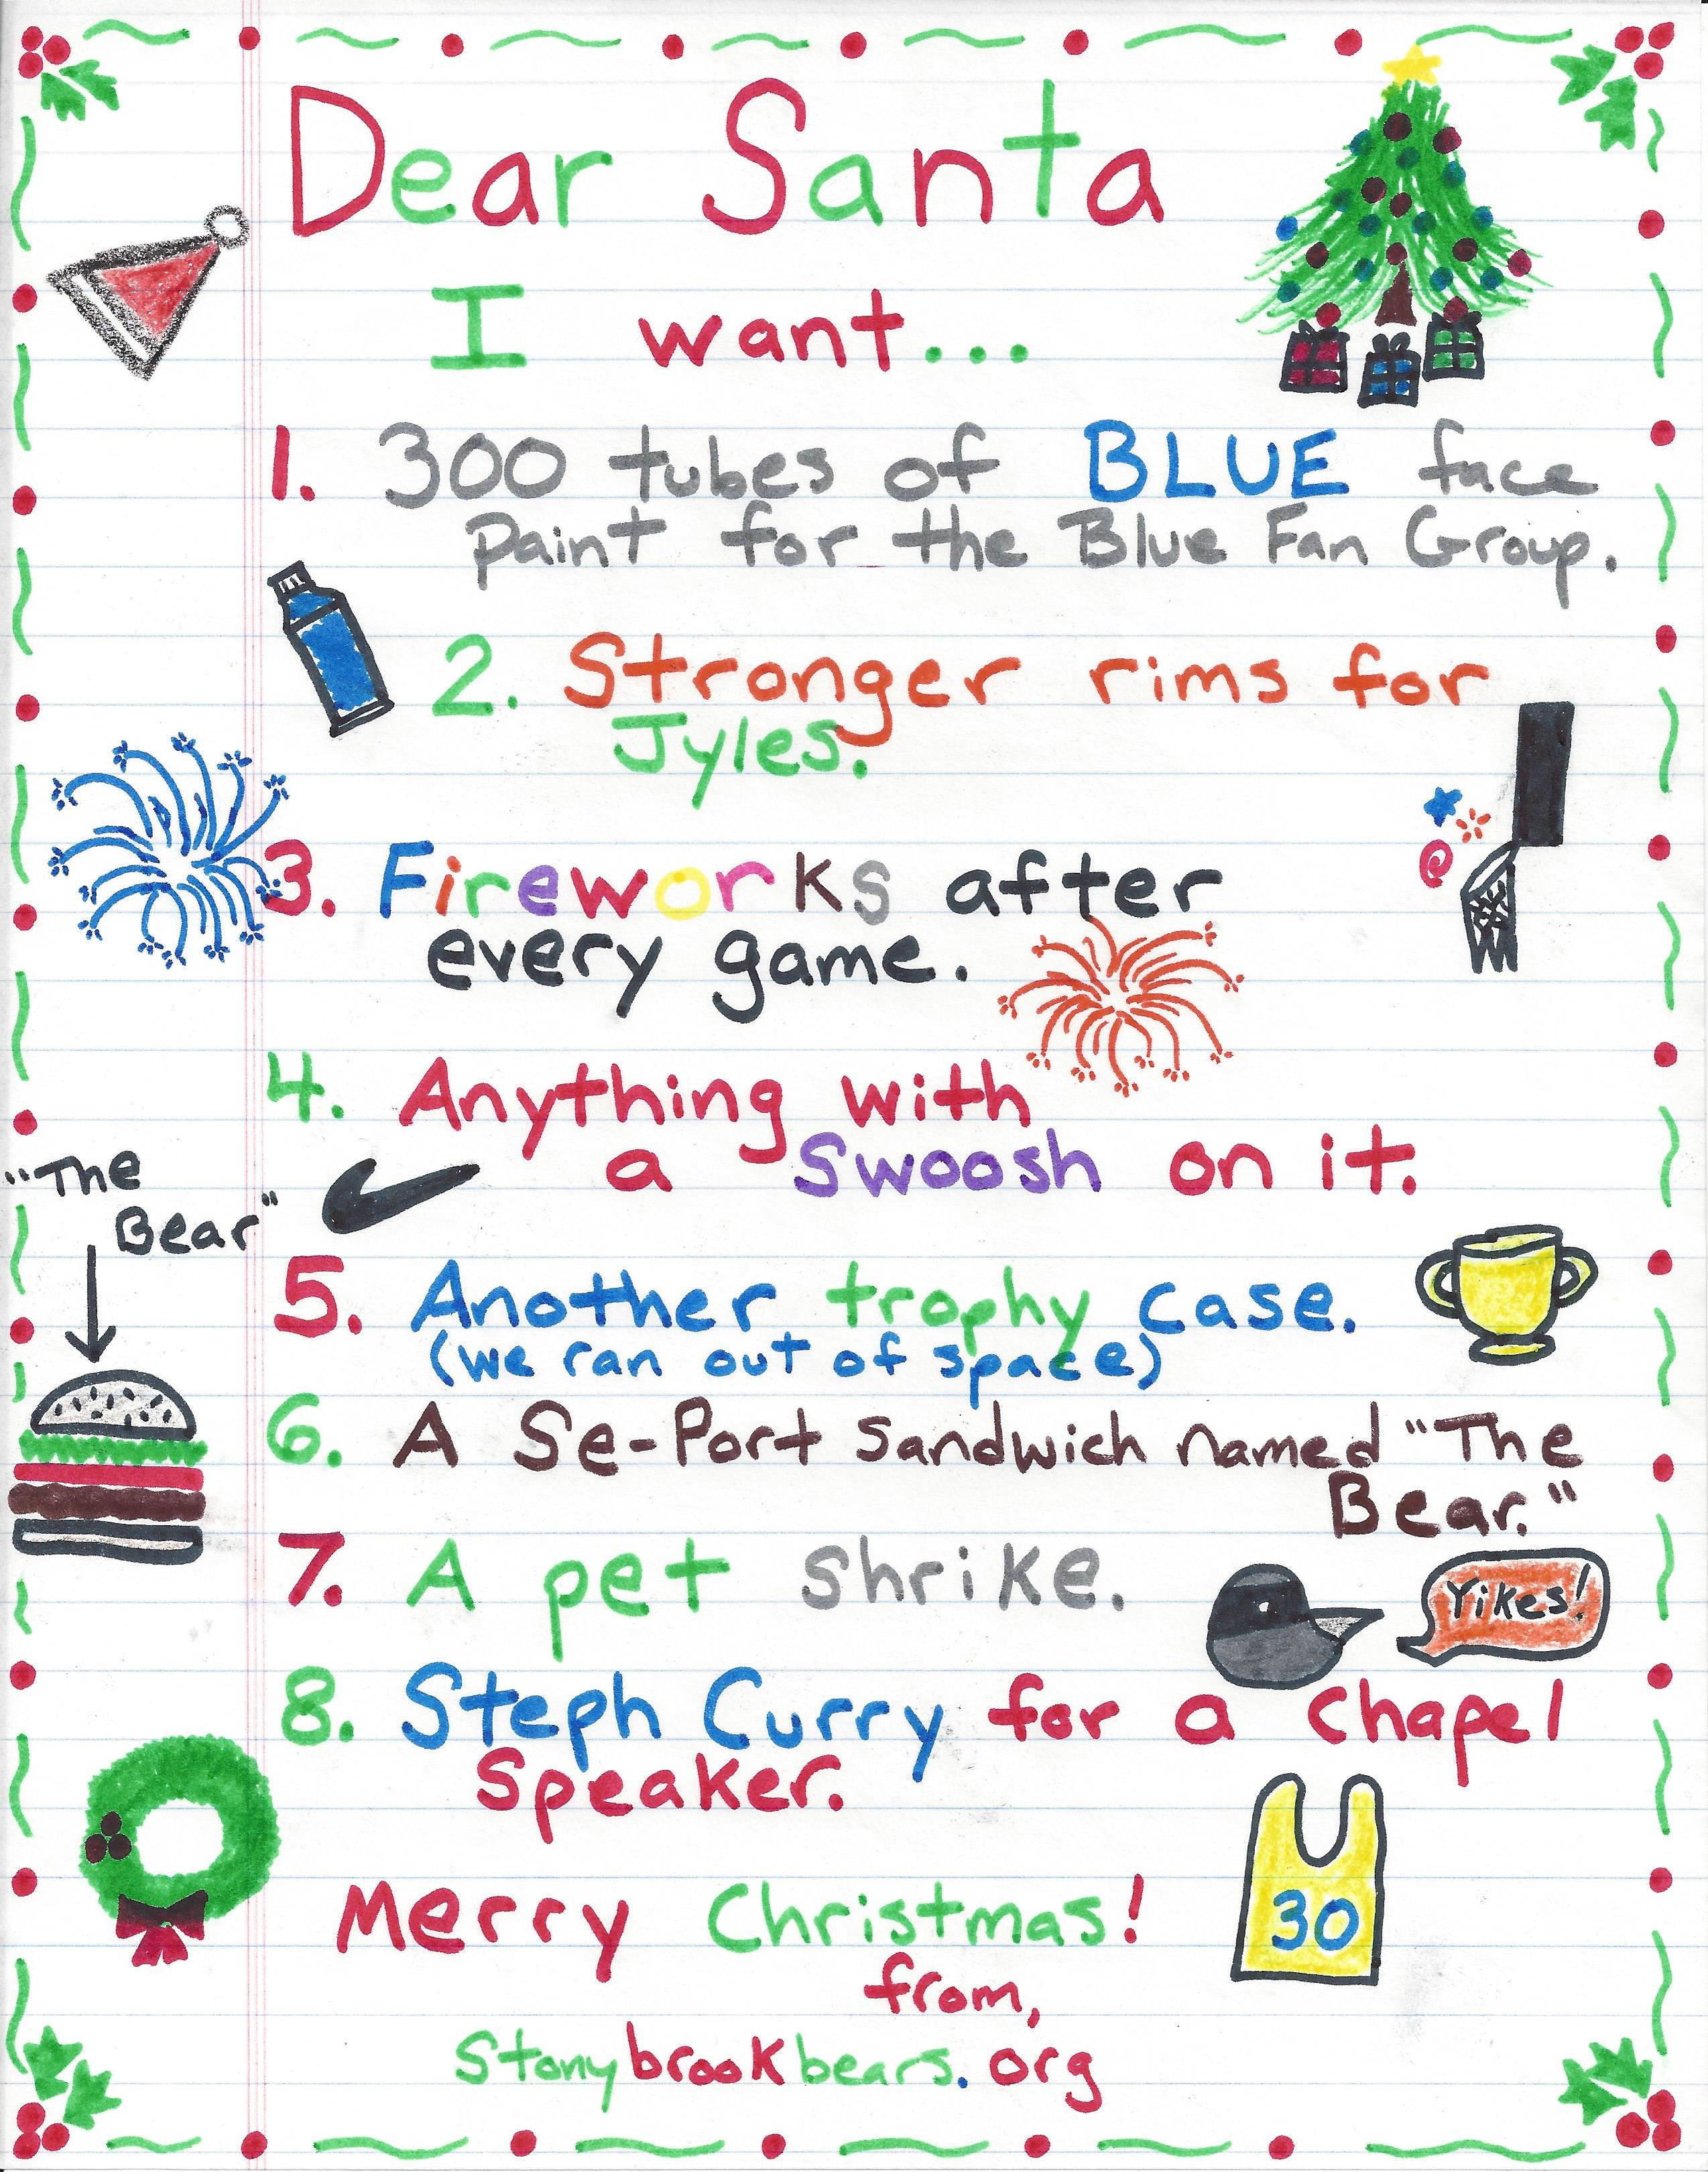 Dear Santa
I want...
1. 300 tubes of BLUE face
Paint for the Blue Fan Group.
2. Stronger rims for
Jyles.
3. Fireworks after
every game.
4. Anything with
a Swoosh on it.
"The
Bear"
5. Another trophy case.
(we ran out of space)
6. A Se-Port sandwich named "The
Bear."
7. A pet shrike.
Yikes!
8. Steph Curry for a chapel
Speaker.
30
Merry Christmas!
from,
Stonybrookbears.org